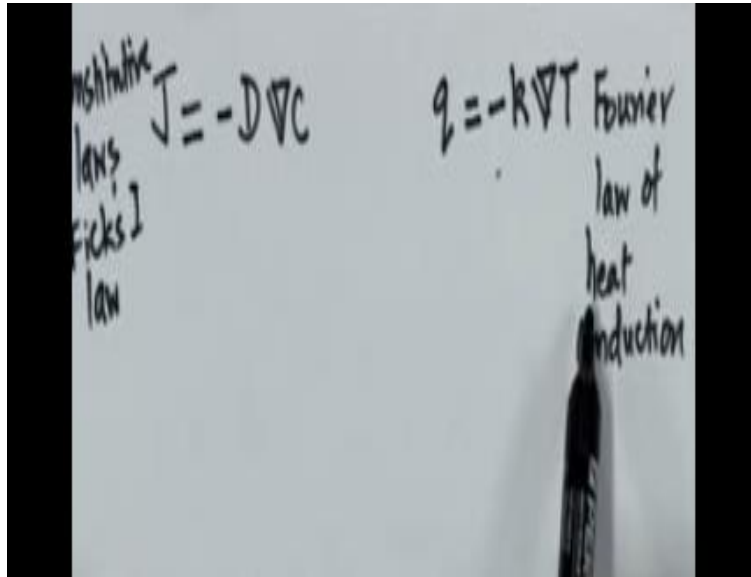 nstitutive
laws
Ficks I
law
J = -D∇C
q = -k∇T Fourier
law of
heat
nduction